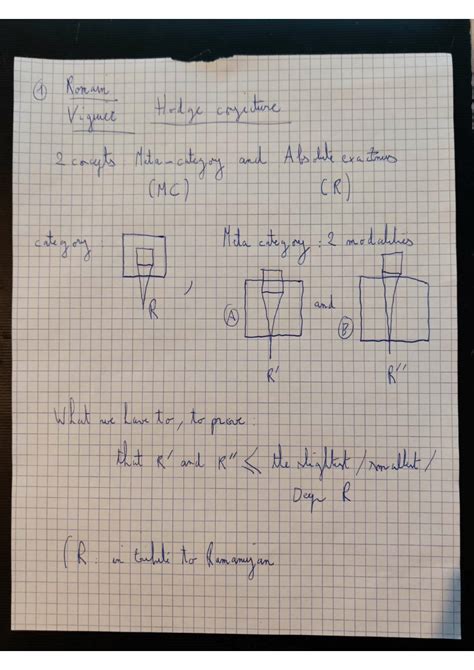 ① Romain
Viguier Hodge conjecture
2 concepts Meta-category and Absolute exactness
(MC) (R)
category : Meta category : 2 modalities
R , Ⓐ and Ⓑ
R' R''
What we have to, to prove :
that R' and R'' ⩽ the slightest / smallest /
Deep R
(R : in tribute to Ramanujan